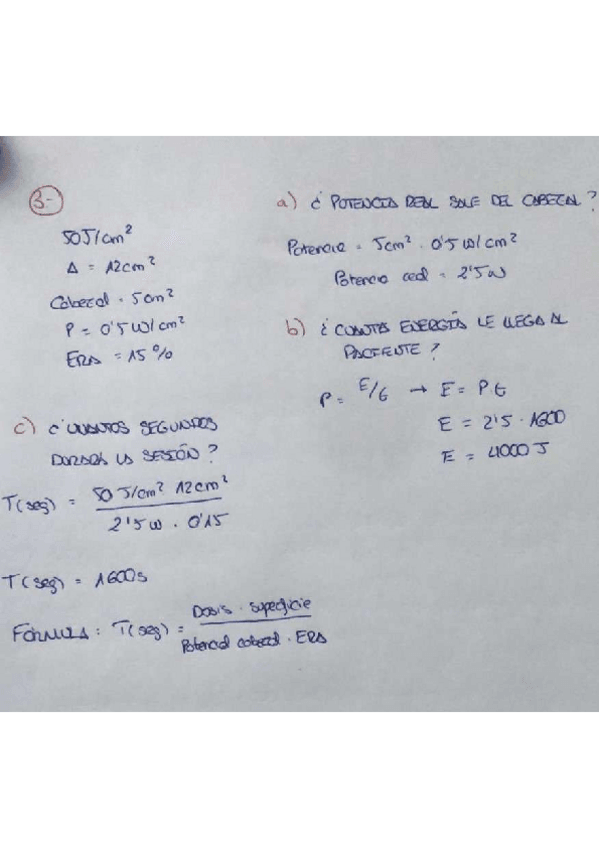 3-
50J/cm²
A = 12cm²
Cabezal = 5cm²
P = 0'5 W/cm²
ERA = 15%
a) ¿ POTENCIA REAL SALE DEL CABEZAL?
Potencia = 5cm² · 0'5 W/cm²
Potencia real = 2'5W
b) ¿ CUANTA ENERGÍA LE LLEGA AL
PACIENTE?
P = E/t → E = P t
E = 2'5 · 1600
E = 4000 J
c) ¿CUANTOS SEGUNDOS
DURARA LA SESIÓN?
T(seg) = 50 J/cm² 12cm²
2'5W · 0'15
T(seg) = 1600s
FÓRMULA: T(seg) = Dosis · superficie
Potencial cabezal · ERA